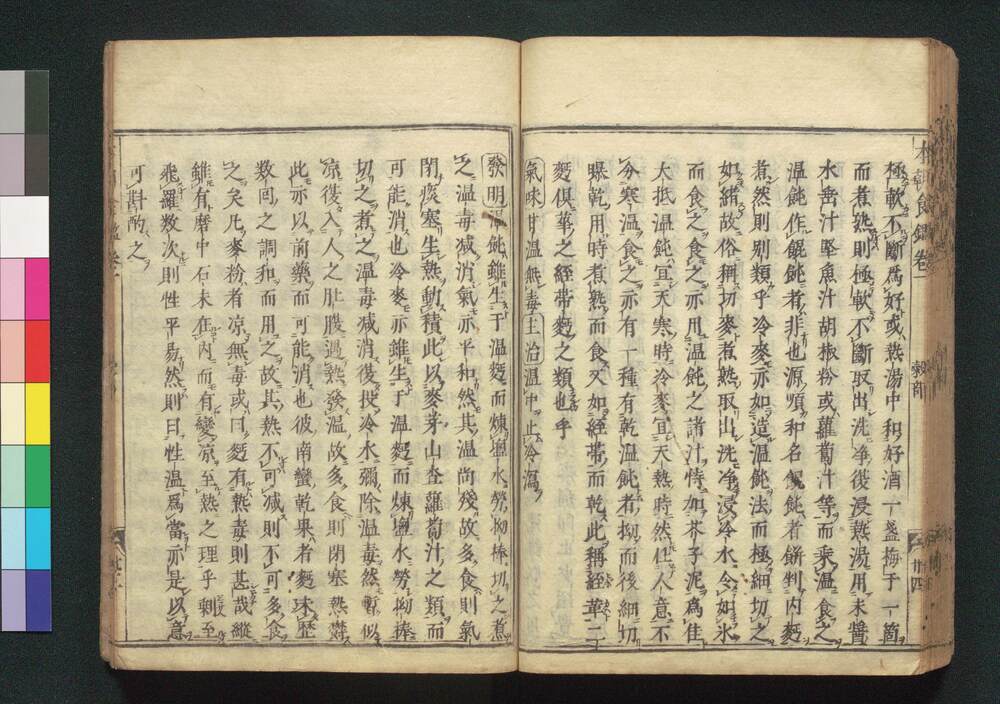 極軟不斷爲好或熱湯中和好酒一盞梅干一箇
而煮熟則極軟不斷取出洗淨後浸熱湯用未醬
水垂汁堅魚汁胡椒粉或蘿蔔汁等而乘温食之
温飩作餛飩者非也源順和名餛飩者餅判内麪
煮然則別類乎冷麥亦如造温飩法而極細切之
如緒故俗稱切麥煮熟取出洗淨浸冷水令如氷
而食之食之亦用温飩之諸汁特如芥子泥爲佳
大抵温飩宜天寒時冷麥宜天熱時然任人意不
分寒温食之亦有一種有乾温飩者拗而後細切
曝乾用時煮熟而食又如絰帶而乾此稱絰華二
麪俱華之絰帶麪之類也乎
氣味甘温無毒主治温中止冷瀉
發明温飩雖生于温麪而煉塩水勞拗棒切之煮
之温毒减消氣亦平和然其温尚殘故多食則氣
閉痰塞生熱動積此以麥芽山査蘿蔔汁之類而
可能消也冷麥亦雖生于温麪而煉塩水勞拗捧
切之煮之温毒减消後投冷水彌除温毒然暫似
凉後入人之肚膓過熱發温故多食則閉塞熱鬱
此亦以前藥而可能消也彼南蠻乾果者麪球歷
數回之調和而用之故其熱不可减則不可多食
之矣凡麥粉者凉無毒或曰麪有熱毒則甚哉縱
雖有磨中石末在内而有變凉至熱之理乎剰至
飛羅数次則性平易然則曰性温爲當亦是以意
可斟酌之
本朝食鑑卷一
穀部
廿四